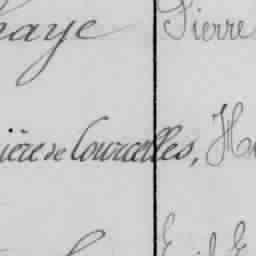 haye Pierre
ière de Courcelles, H